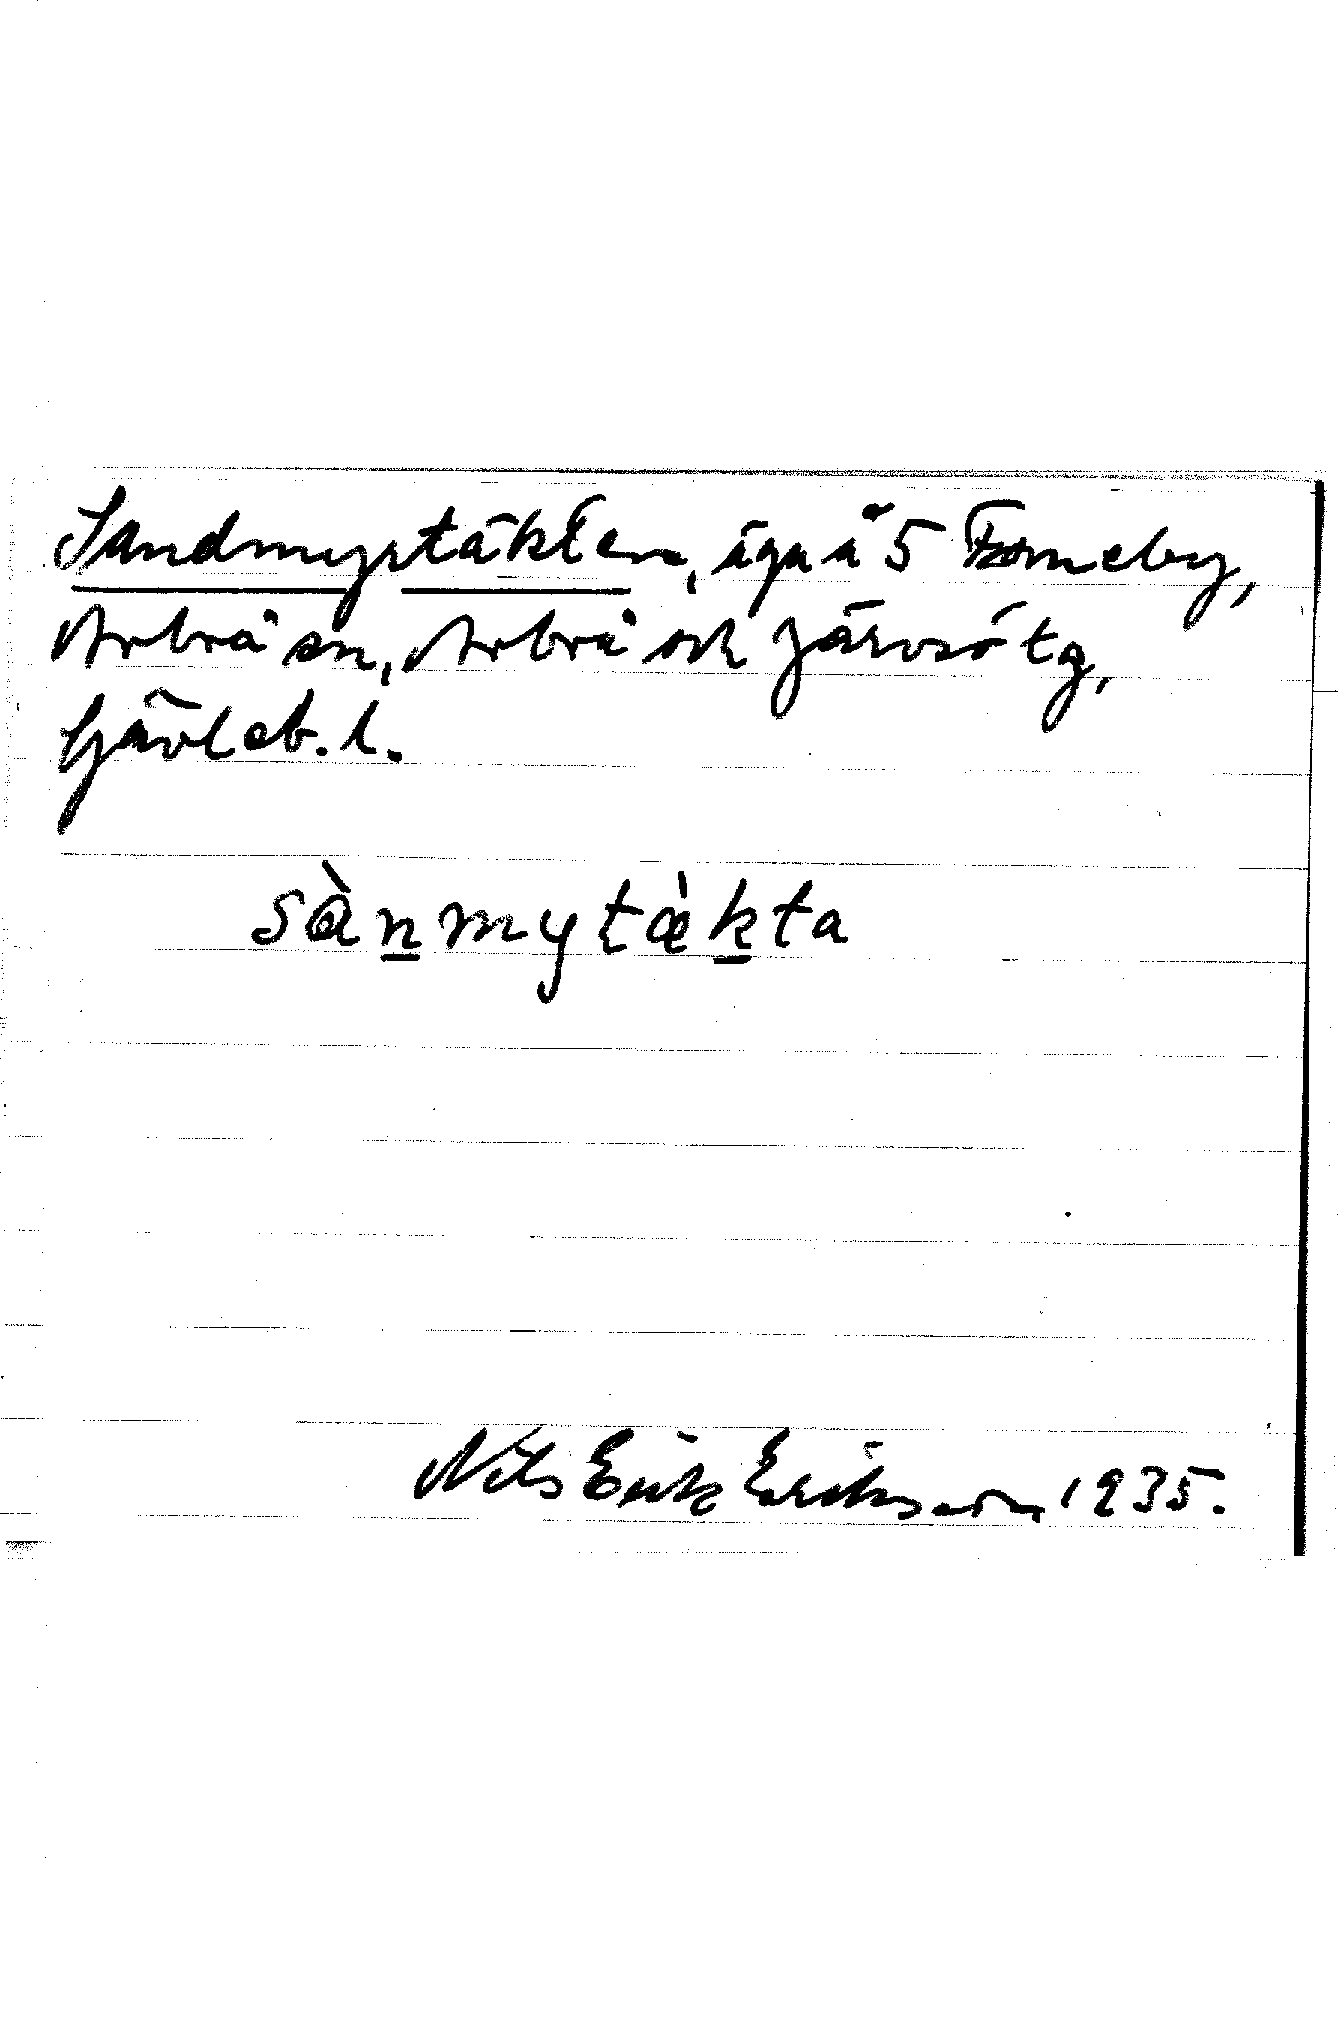 Sandmyrtäkten, äga å 5 Forneby,
Arbrå sn, Arbrå och Järvsö tg,
Gävleb. l.
sànmytæ̀kta
Nils Erik Eriksson 1935.